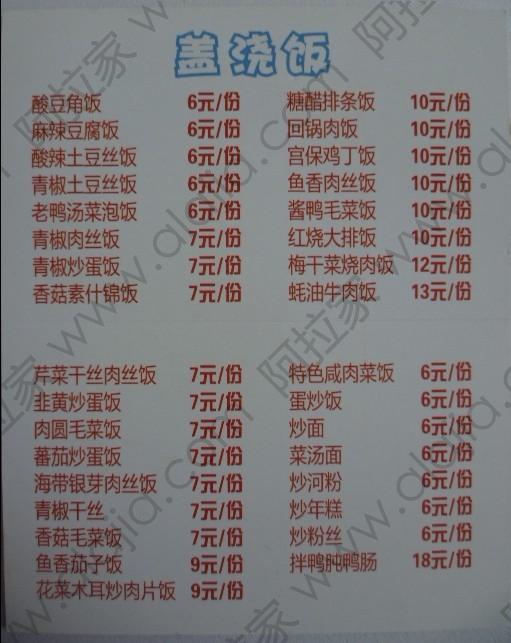 盖浇饭
酸豆角饭 6元/份
麻辣豆腐饭 6元/份
酸辣土豆丝饭 6元/份
青椒土豆丝饭 6元/份
老鸭汤菜泡饭 6元/份
青椒肉丝饭 7元/份
青椒炒蛋饭 7元/份
香菇素什锦饭 7元/份
糖醋排条饭 10元/份
回锅肉饭 10元/份
宫保鸡丁饭 10元/份
鱼香肉丝饭 10元/份
酱鸭毛菜饭 10元/份
红烧大排饭 10元/份
梅干菜烧肉饭 12元/份
蚝油牛肉饭 13元/份
芹菜干丝肉丝饭 7元/份
韭黄炒蛋饭 7元/份
肉圆毛菜饭 7元/份
蕃茄炒蛋饭 7元/份
海带银芽肉丝饭 7元/份
青椒干丝 7元/份
香菇毛菜饭 7元/份
鱼香茄子饭 9元/份
花菜木耳炒肉片饭 9元/份
特色咸肉菜饭 6元/份
蛋炒饭 6元/份
炒面 6元/份
菜汤面 6元/份
炒河粉 6元/份
炒年糕 6元/份
炒粉丝 6元/份
拌鸭肫鸭肠 18元/份
阿拉家 www.alajia.com